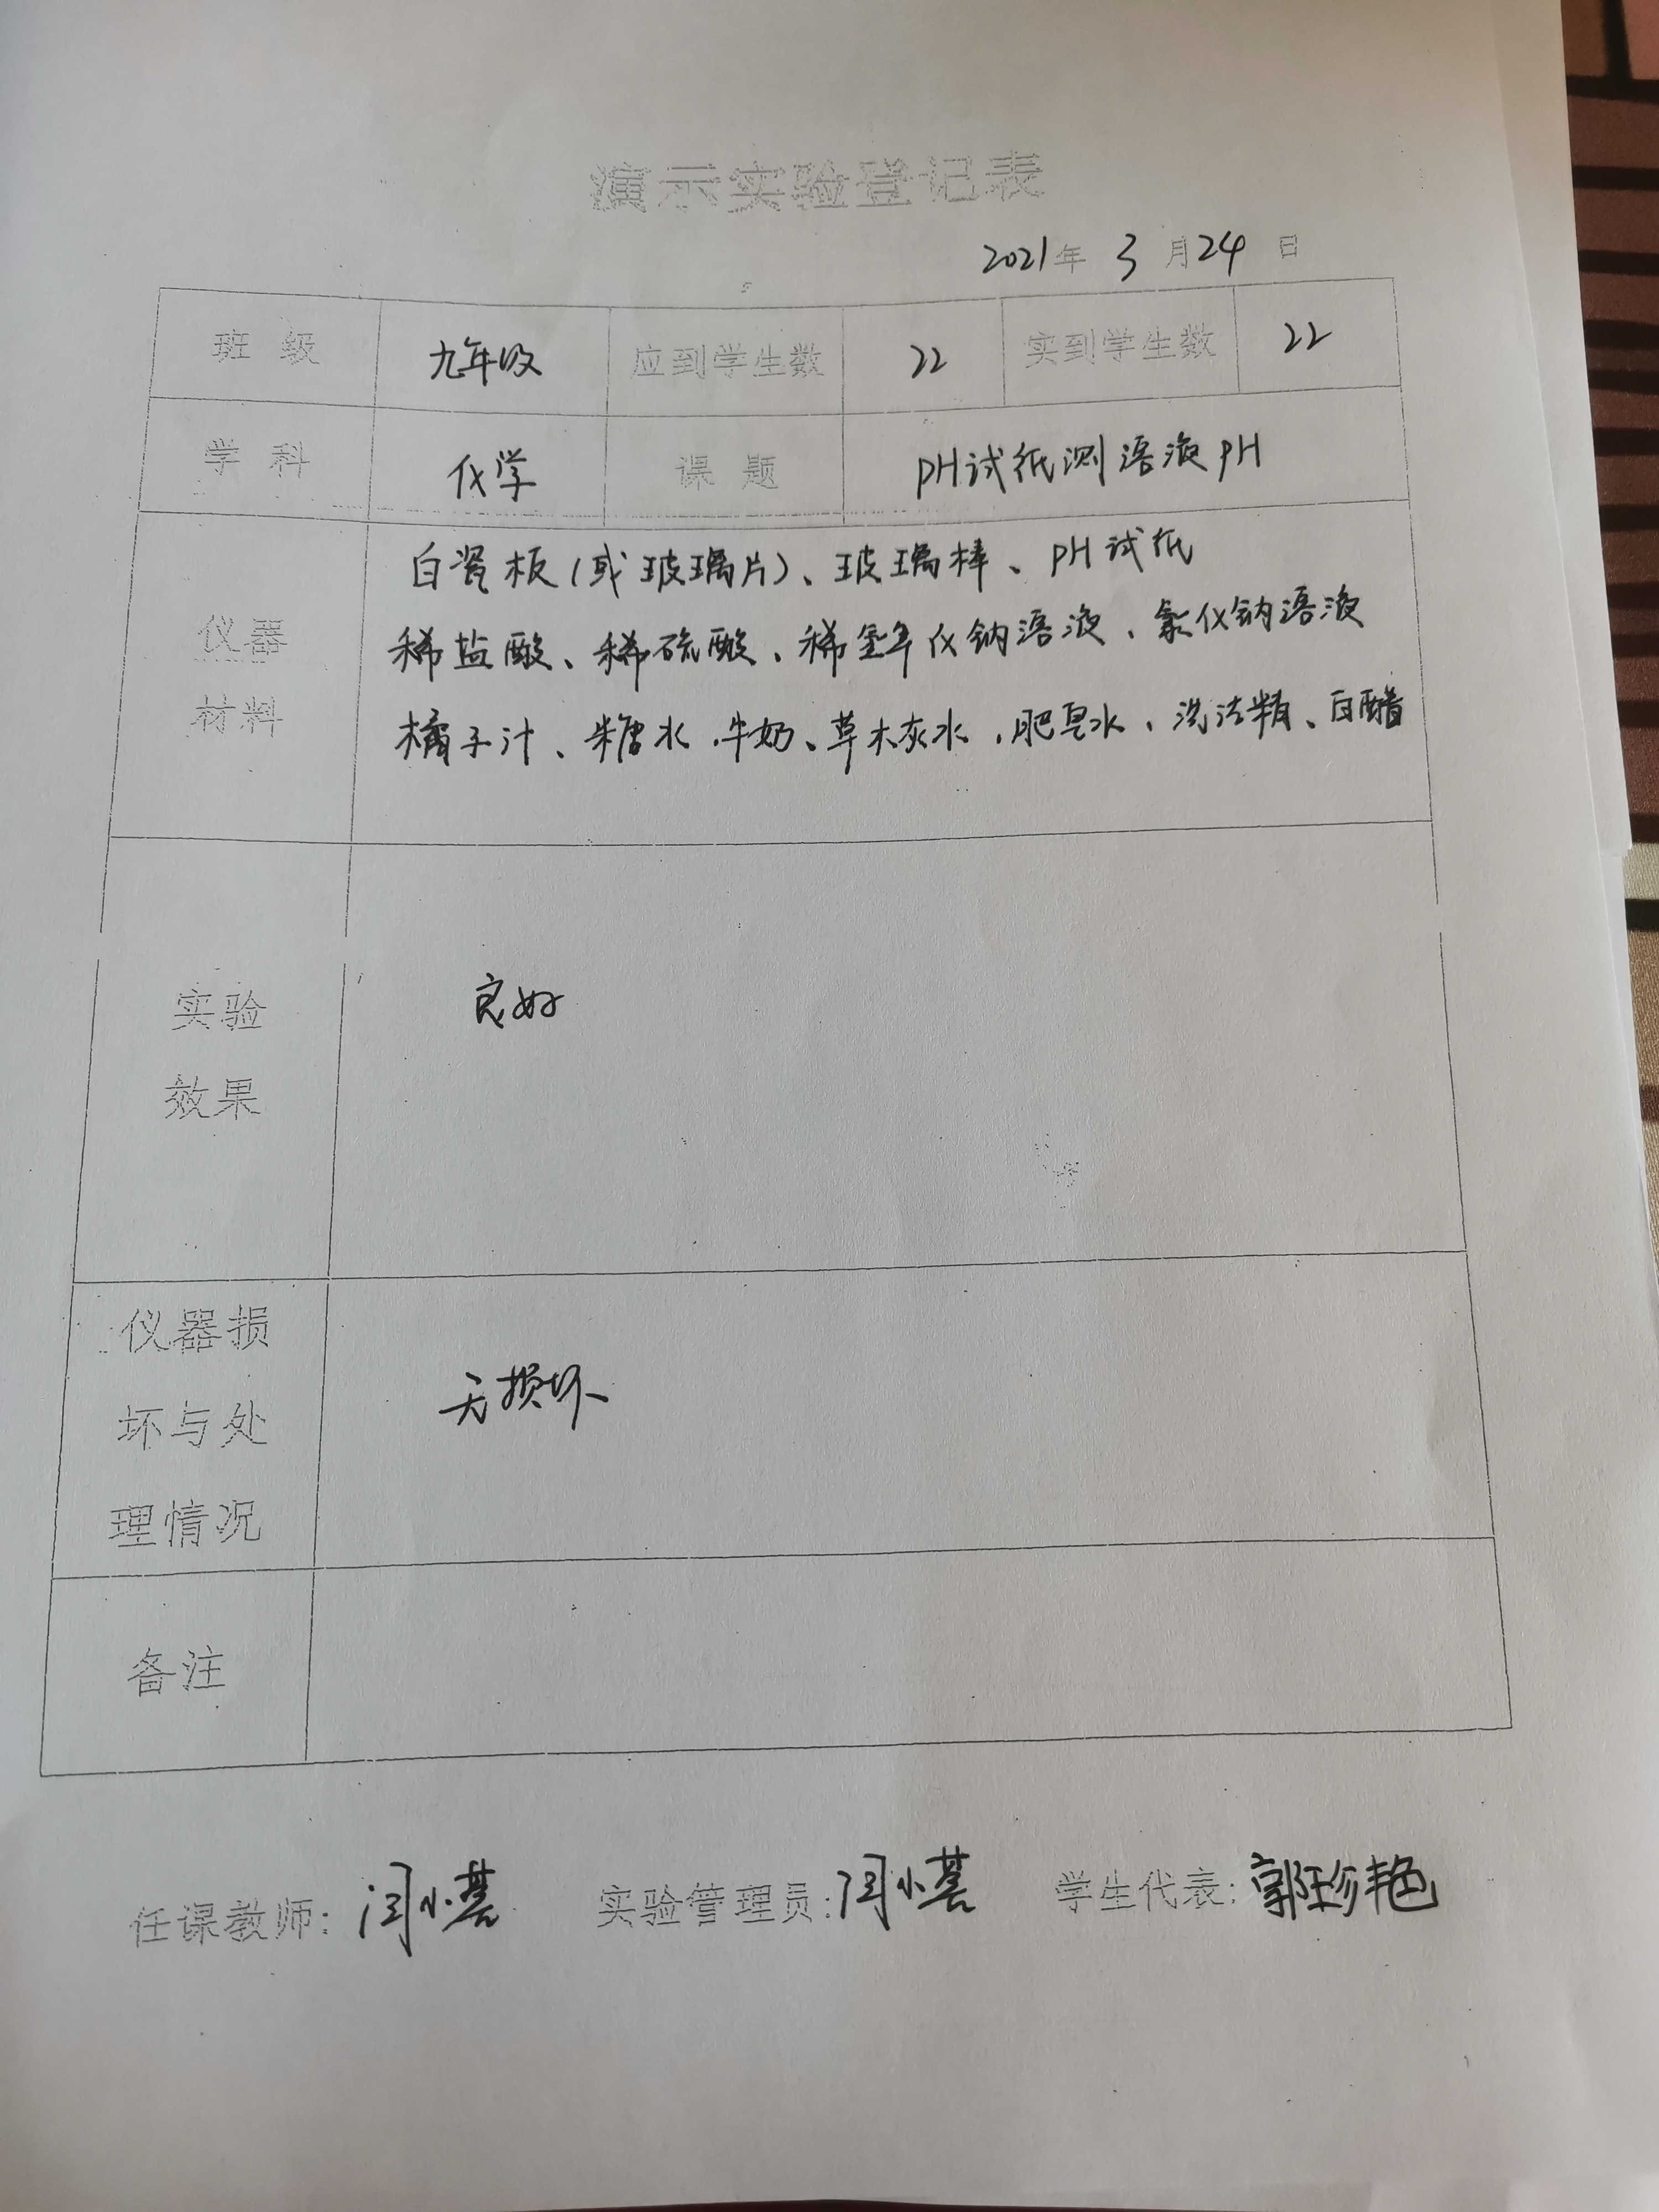 演示实验登记表
2021年 3 月 24 日
班级 九年级 应到学生数 22 实到学生数 22
学科 化学 课题 PH试纸测溶液PH
仪器
材料
白瓷板(或玻璃片)、玻璃棒、PH试纸
稀盐酸、稀硫酸、稀氢氧化钠溶液、氯化钠溶液
橘子汁、糖水、牛奶、草木灰水、肥皂水、洗洁精、白醋
实验
效果
良好
仪器损
坏与处
理情况
无损坏
备注
任课教师: 闫小 实验管理员: 闫小 学生代表: 郭珍艳